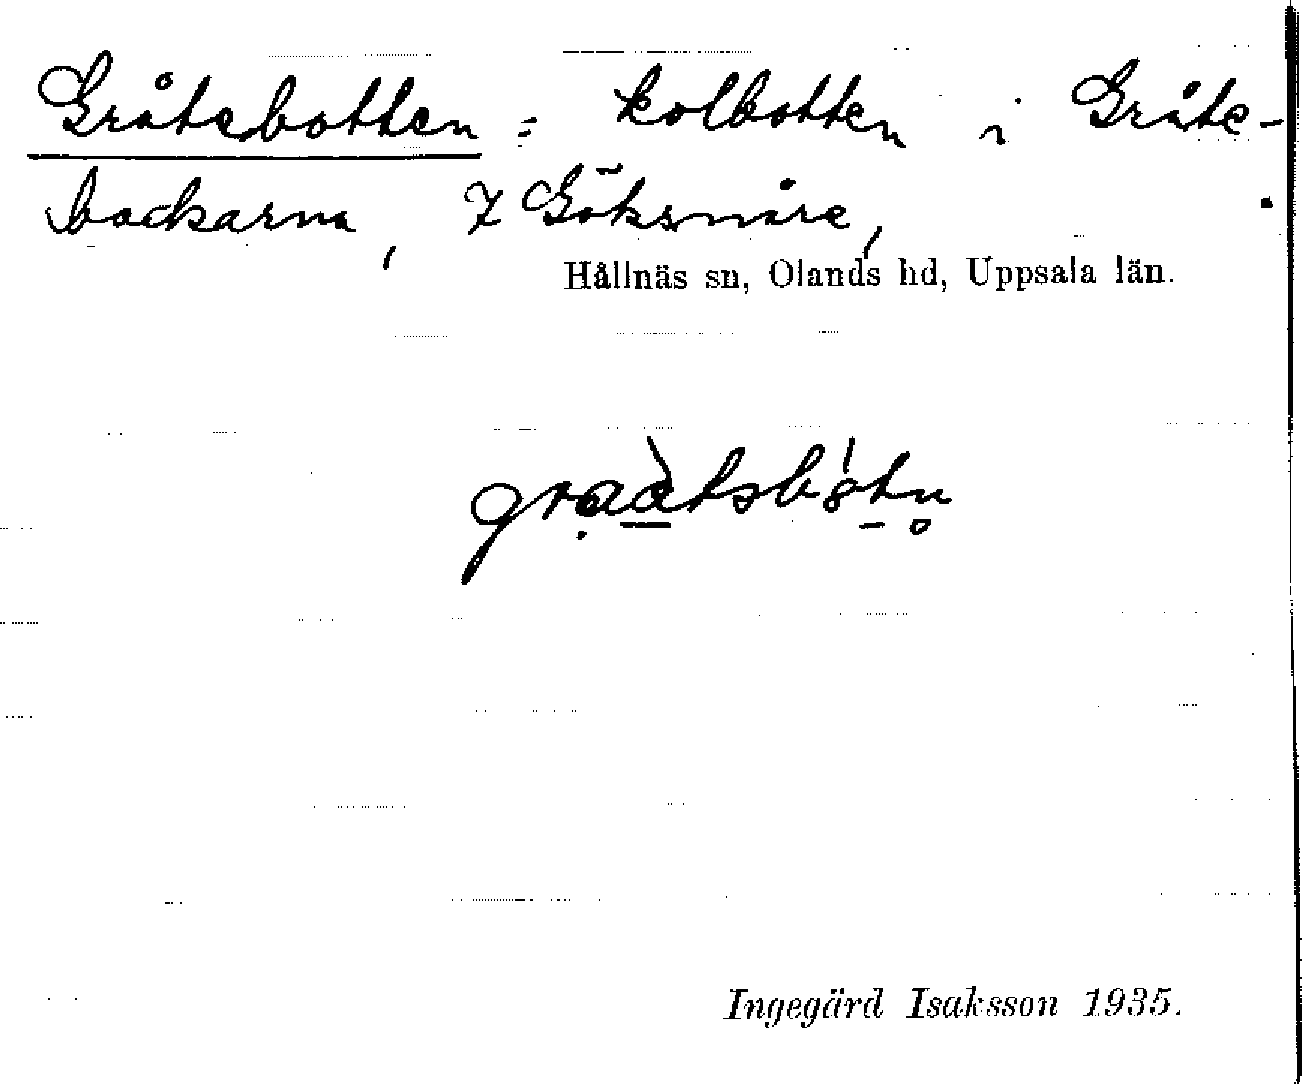 Gråtsbotten = kolbotten i Gråts-
backarna, 7 Göksnåre,
Hållnäs sn, Olands hd, Uppsala län.
Ingegärd Isaksson 1935.